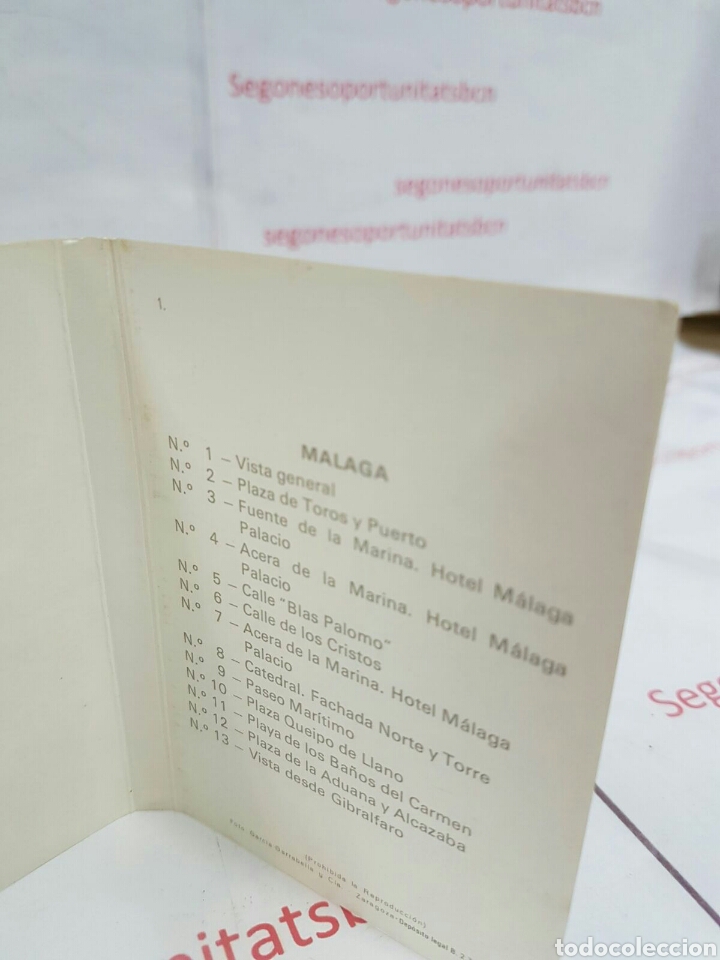 Segonesoportunitatsbcn
segonesoportunitatsbcn
segonesoportunitatsbcn
1.
MALAGA
N.º 1 – Vista general
N.º 2 – Plaza de Toros y Puerto
N.º 3 – Fuente de la Marina. Hotel Málaga
Palacio
N.º 4 – Acera de la Marina. Hotel Málaga
Palacio
N.º 5 – Calle "Blas Palomo"
N.º 6 – Calle de los Cristos
N.º 7 – Acera de la Marina. Hotel Málaga
Palacio
N.º 8 – Catedral. Fachada Norte y Torre
N.º 9 – Paseo Marítimo
N.º 10 – Plaza Queipo de Llano
N.º 11 – Playa de los Baños del Carmen
N.º 12 – Plaza de la Aduana y Alcazaba
N.º 13 – Vista desde Gibralfaro
(Prohibida la Reproducción)
Foto García Garrabella y Cía. Zaragoza-Depósito legal B. 2
todocoleccion